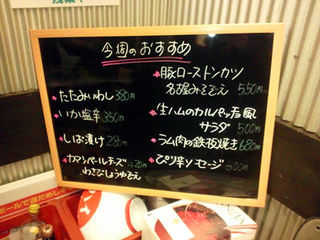 今週のおすすめ
たたみいわし 380円
いか塩辛 350円
しば漬け 280円
カマンベールチーズ 420円
わさびしょうゆぞえ
豚ローストンカツ
名古屋みそぞえ 550円
生ハムのカルパッチョ風
サラダ 500円
ラム肉の鉄板焼き 680円
ぴり辛ソーセージ 500円